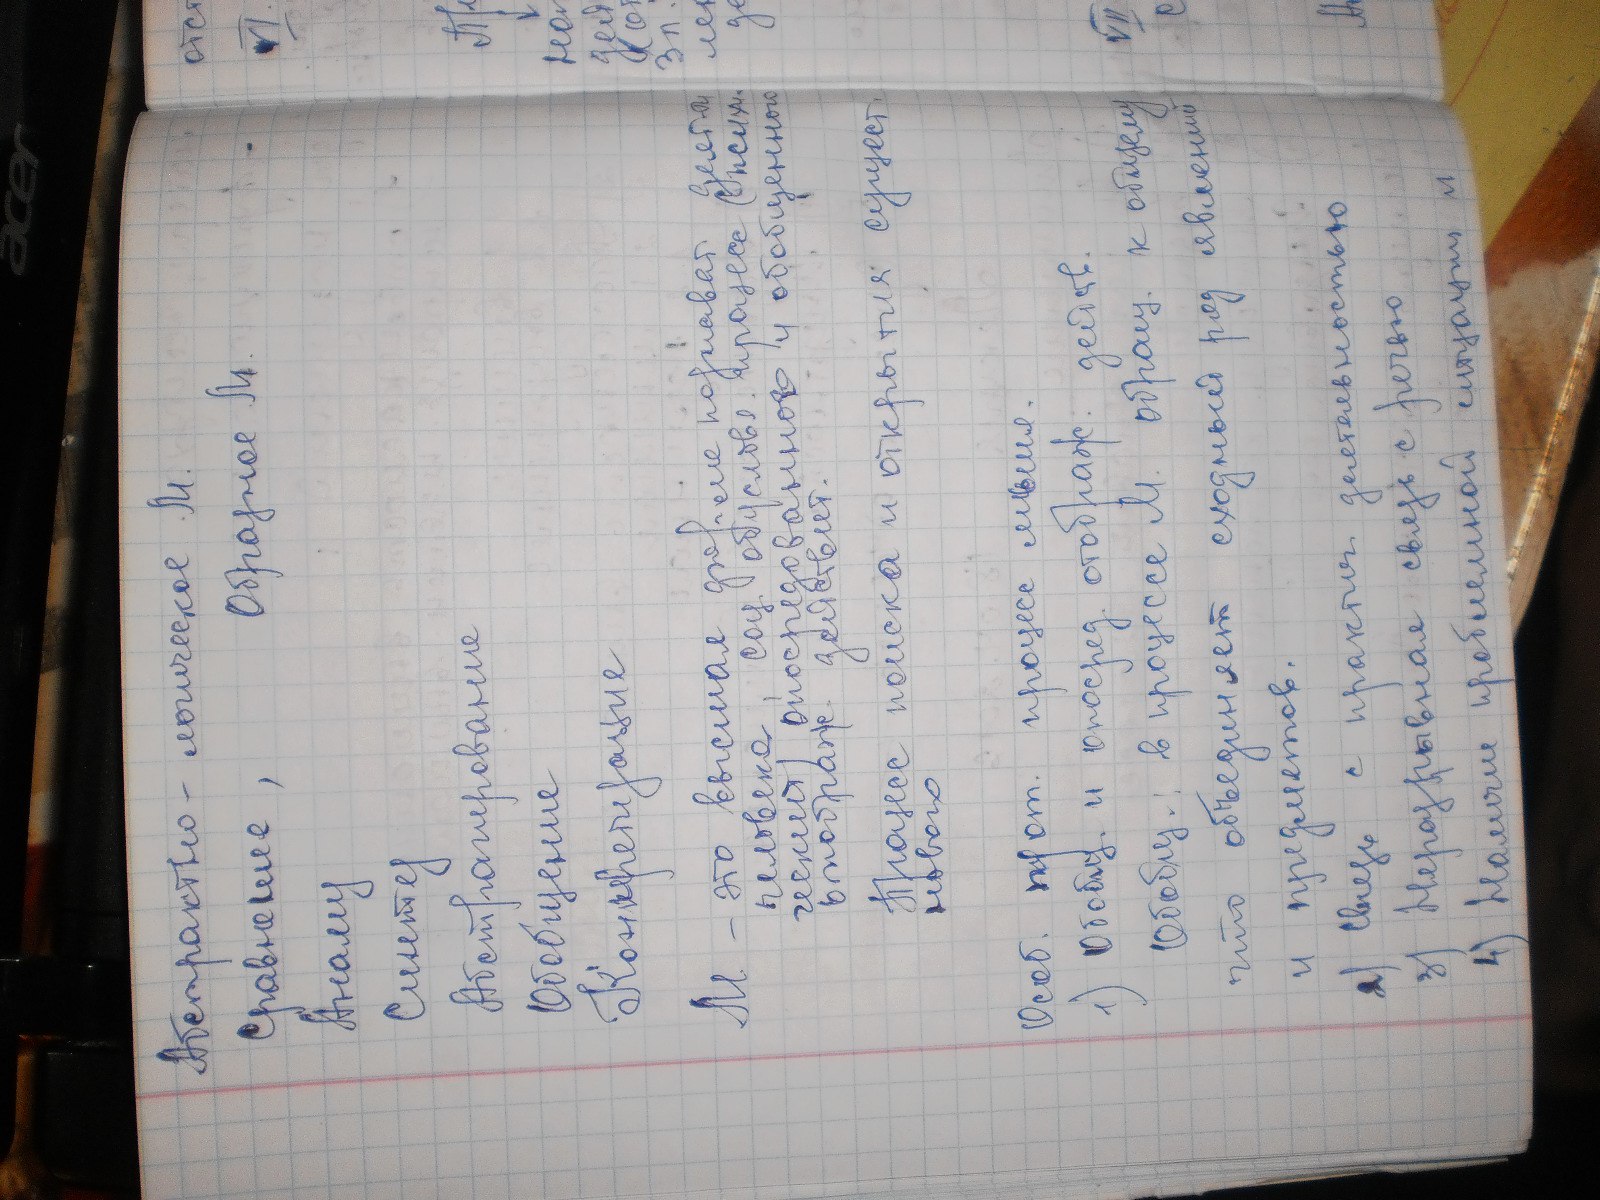 Абстрактно-логическое М.
Сравнение, Образное М.
Анализ
Синтез
Абстрагирование
Обобщение
Конкретизация
М - это высшая форма познават деят.
человека; соц. обуслов. процесс (психи
ческий) опосредованного и обобщенного
отображ. действит.
Процесс поиска и открытия сущест
нового
Особ. прот. процесс мышл.
1) Обобщ. и опосред. отображ. действ.
Обобщ.: в процессе М. обращ. к общему
что объединяет сходный ряд явлений
и предметов.
2) Связь с практич. деятельностью
3) Неразрывная связь с речью
4) Наличие проблемной ситуации и
VI.
VII
acer